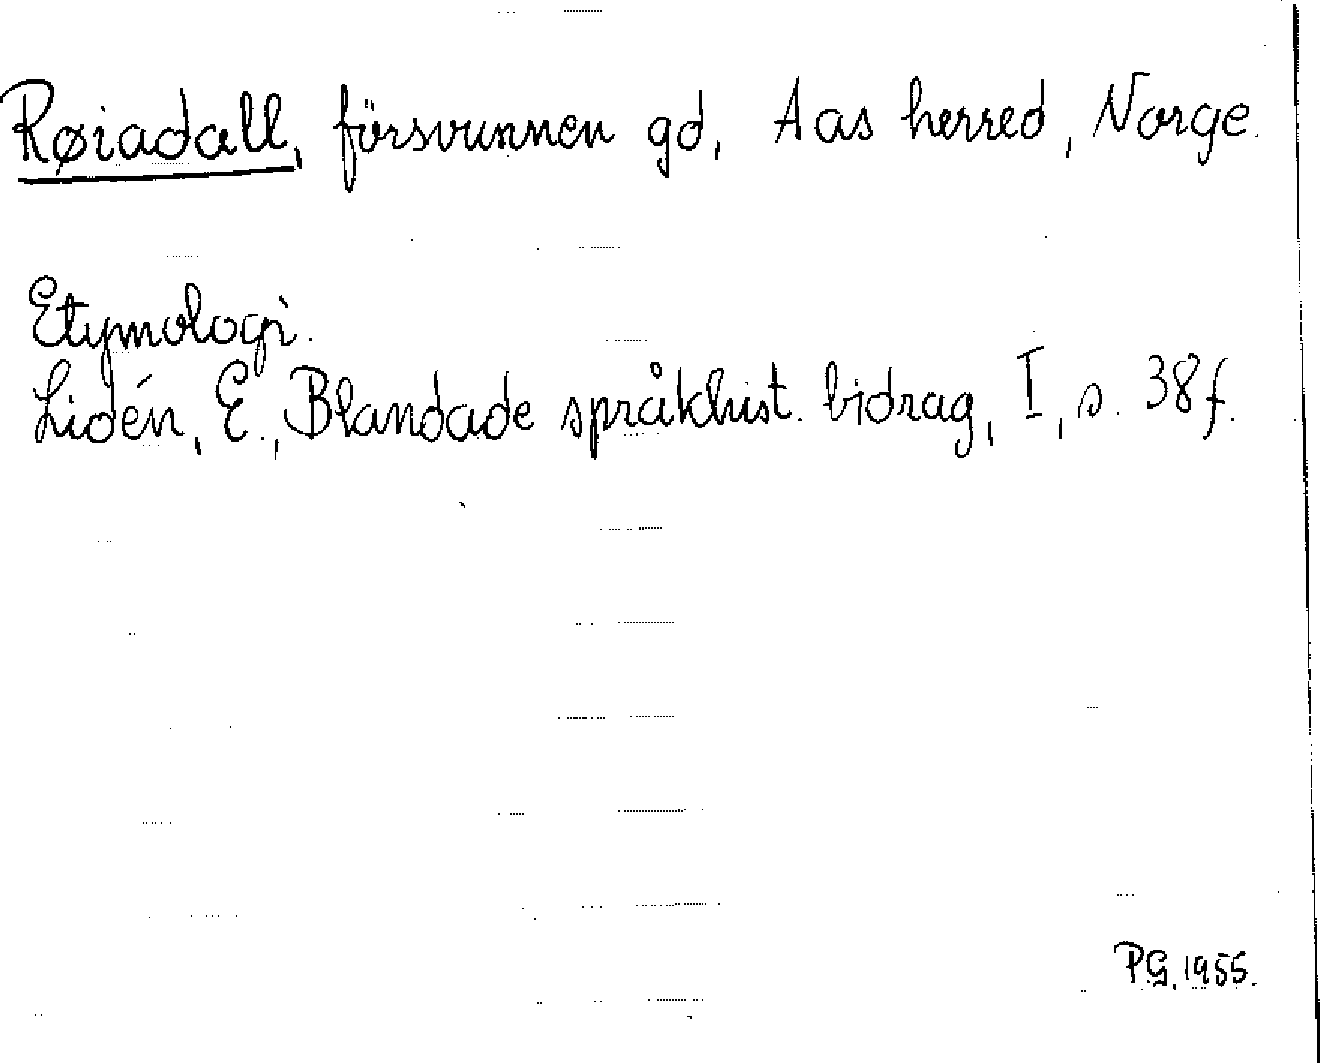 Røiadall, försvunnen gd, Aas herred, Norge.
Etymologi.
Lidén, E., Blandade språkhist. bidrag, I, s. 38f.
PG. 1955.